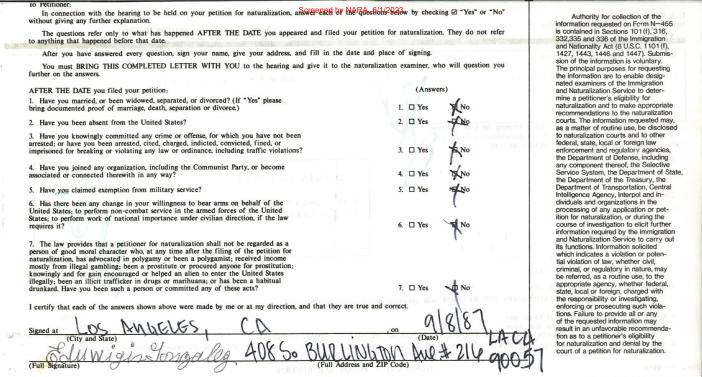 To Petitioner:
Screened by NARA, 6/1/2023
In connection with the hearing to be held on your petition for naturalization, answer each of the questions below by checking ☑ "Yes" or "No"
without giving any further explanation.
The questions refer only to what has happened AFTER THE DATE you appeared and filed your petition for naturalization. They do not refer
to anything that happened before that date.
After you have answered every question, sign your name, give your address, and fill in the date and place of signing.
You must BRING THIS COMPLETED LETTER WITH YOU to the hearing and give it to the naturalization examiner, who will question you
further on the answers.
AFTER THE DATE you filed your petition:
(Answers)
1. Have you married, or been widowed, separated, or divorced? (If "Yes" please
bring documented proof of marriage, death, separation or divorce.)
1. ☐ Yes ☒ No
2. Have you been absent from the United States?
2. ☐ Yes ☒ No
3. Have you knowingly committed any crime or offense, for which you have not been
arrested; or have you been arrested, cited, charged, indicted, convicted, fined, or
imprisoned for breaking or violating any law or ordinance, including traffic violations?
3. ☐ Yes ☒ No
4. Have you joined any organization, including the Communist Party, or become
associated or connected therewith in any way?
4. ☐ Yes ☒ No
5. Have you claimed exemption from military service?
5. ☐ Yes ☒ No
6. Has there been any change in your willingness to bear arms on behalf of the
United States; to perform non-combat service in the armed forces of the United
States; to perform work of national importance under civilian direction, if the law
requires it?
6. ☐ Yes ☒ No
7. The law provides that a petitioner for naturalization shall not be regarded as a
person of good moral character who, at any time after the filing of the petition for
naturalization, has advocated in polygamy or been a polygamist; received income
mostly from illegal gambling; been a prostitute or procured anyone for prostitution;
knowingly and for gain encouraged or helped an alien to enter the United States
illegally; been an illicit trafficker in drugs or marihuana; or has been a habitual
drunkard. Have you been such a person or committed any of these acts?
7. ☐ Yes ☒ No
I certify that each of the answers shown above were made by me or at my direction, and that they are true and correct.
Signed at LOS ANGELES, CA , on 9/8/87
(City and State) (Date)
Eduwigis Gonzalez 408 So BURLINGTON Ave # 216 LA CA 90057
(Full Signature) (Full Address and ZIP Code)
Authority for collection of the
information requested on Form N-455
is contained in Sections 101(f), 316,
332,335 and 336 of the Immigration
and Nationality Act (8 U.S.C. 1101(f),
1427, 1443, 1446 and 1447). Submis-
sion of the information is voluntary.
The principal purposes for requesting
the information are to enable desig-
nated examiners of the Immigration
and Naturalization Service to deter-
mine a petitioner's eligibility for
naturalization and to make appropriate
recommendations to the naturalization
courts. The information requested may,
as a matter of routine use, be disclosed
to naturalization courts and to other
federal, state, local or foreign law
enforcement and regulatory agencies,
the Department of Defense, including
any component thereof, the Selective
Service System, the Department of State,
the Department of the Treasury, the
Department of Transportation, Central
Intelligence Agency, Interpol and in-
dividuals and organizations in the
processing of any application or pet-
ition for naturalization, or during the
course of investigation to elicit further
information required by the Immigration
and Naturalization Service to carry out
its functions. Information solicited
which indicates a violation or poten-
tial violation of law, whether civil,
criminal, or regulatory in nature, may
be referred, as a routine use, to the
appropriate agency, whether federal,
state, local or foreign, charged with
the responsibility or investigating,
enforcing or prosecuting such viola-
tions. Failure to provide all or any
of the requested information may
result in an unfavorable recommenda-
tion as to a petitioner's eligibility
for naturalization and denial by the
court of a petition for naturalization.